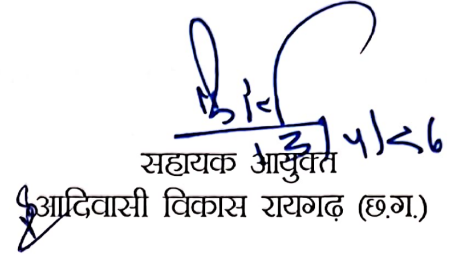 सहायक आयुक्त
आदिवासी विकास रायगढ़ (छ.ग.)